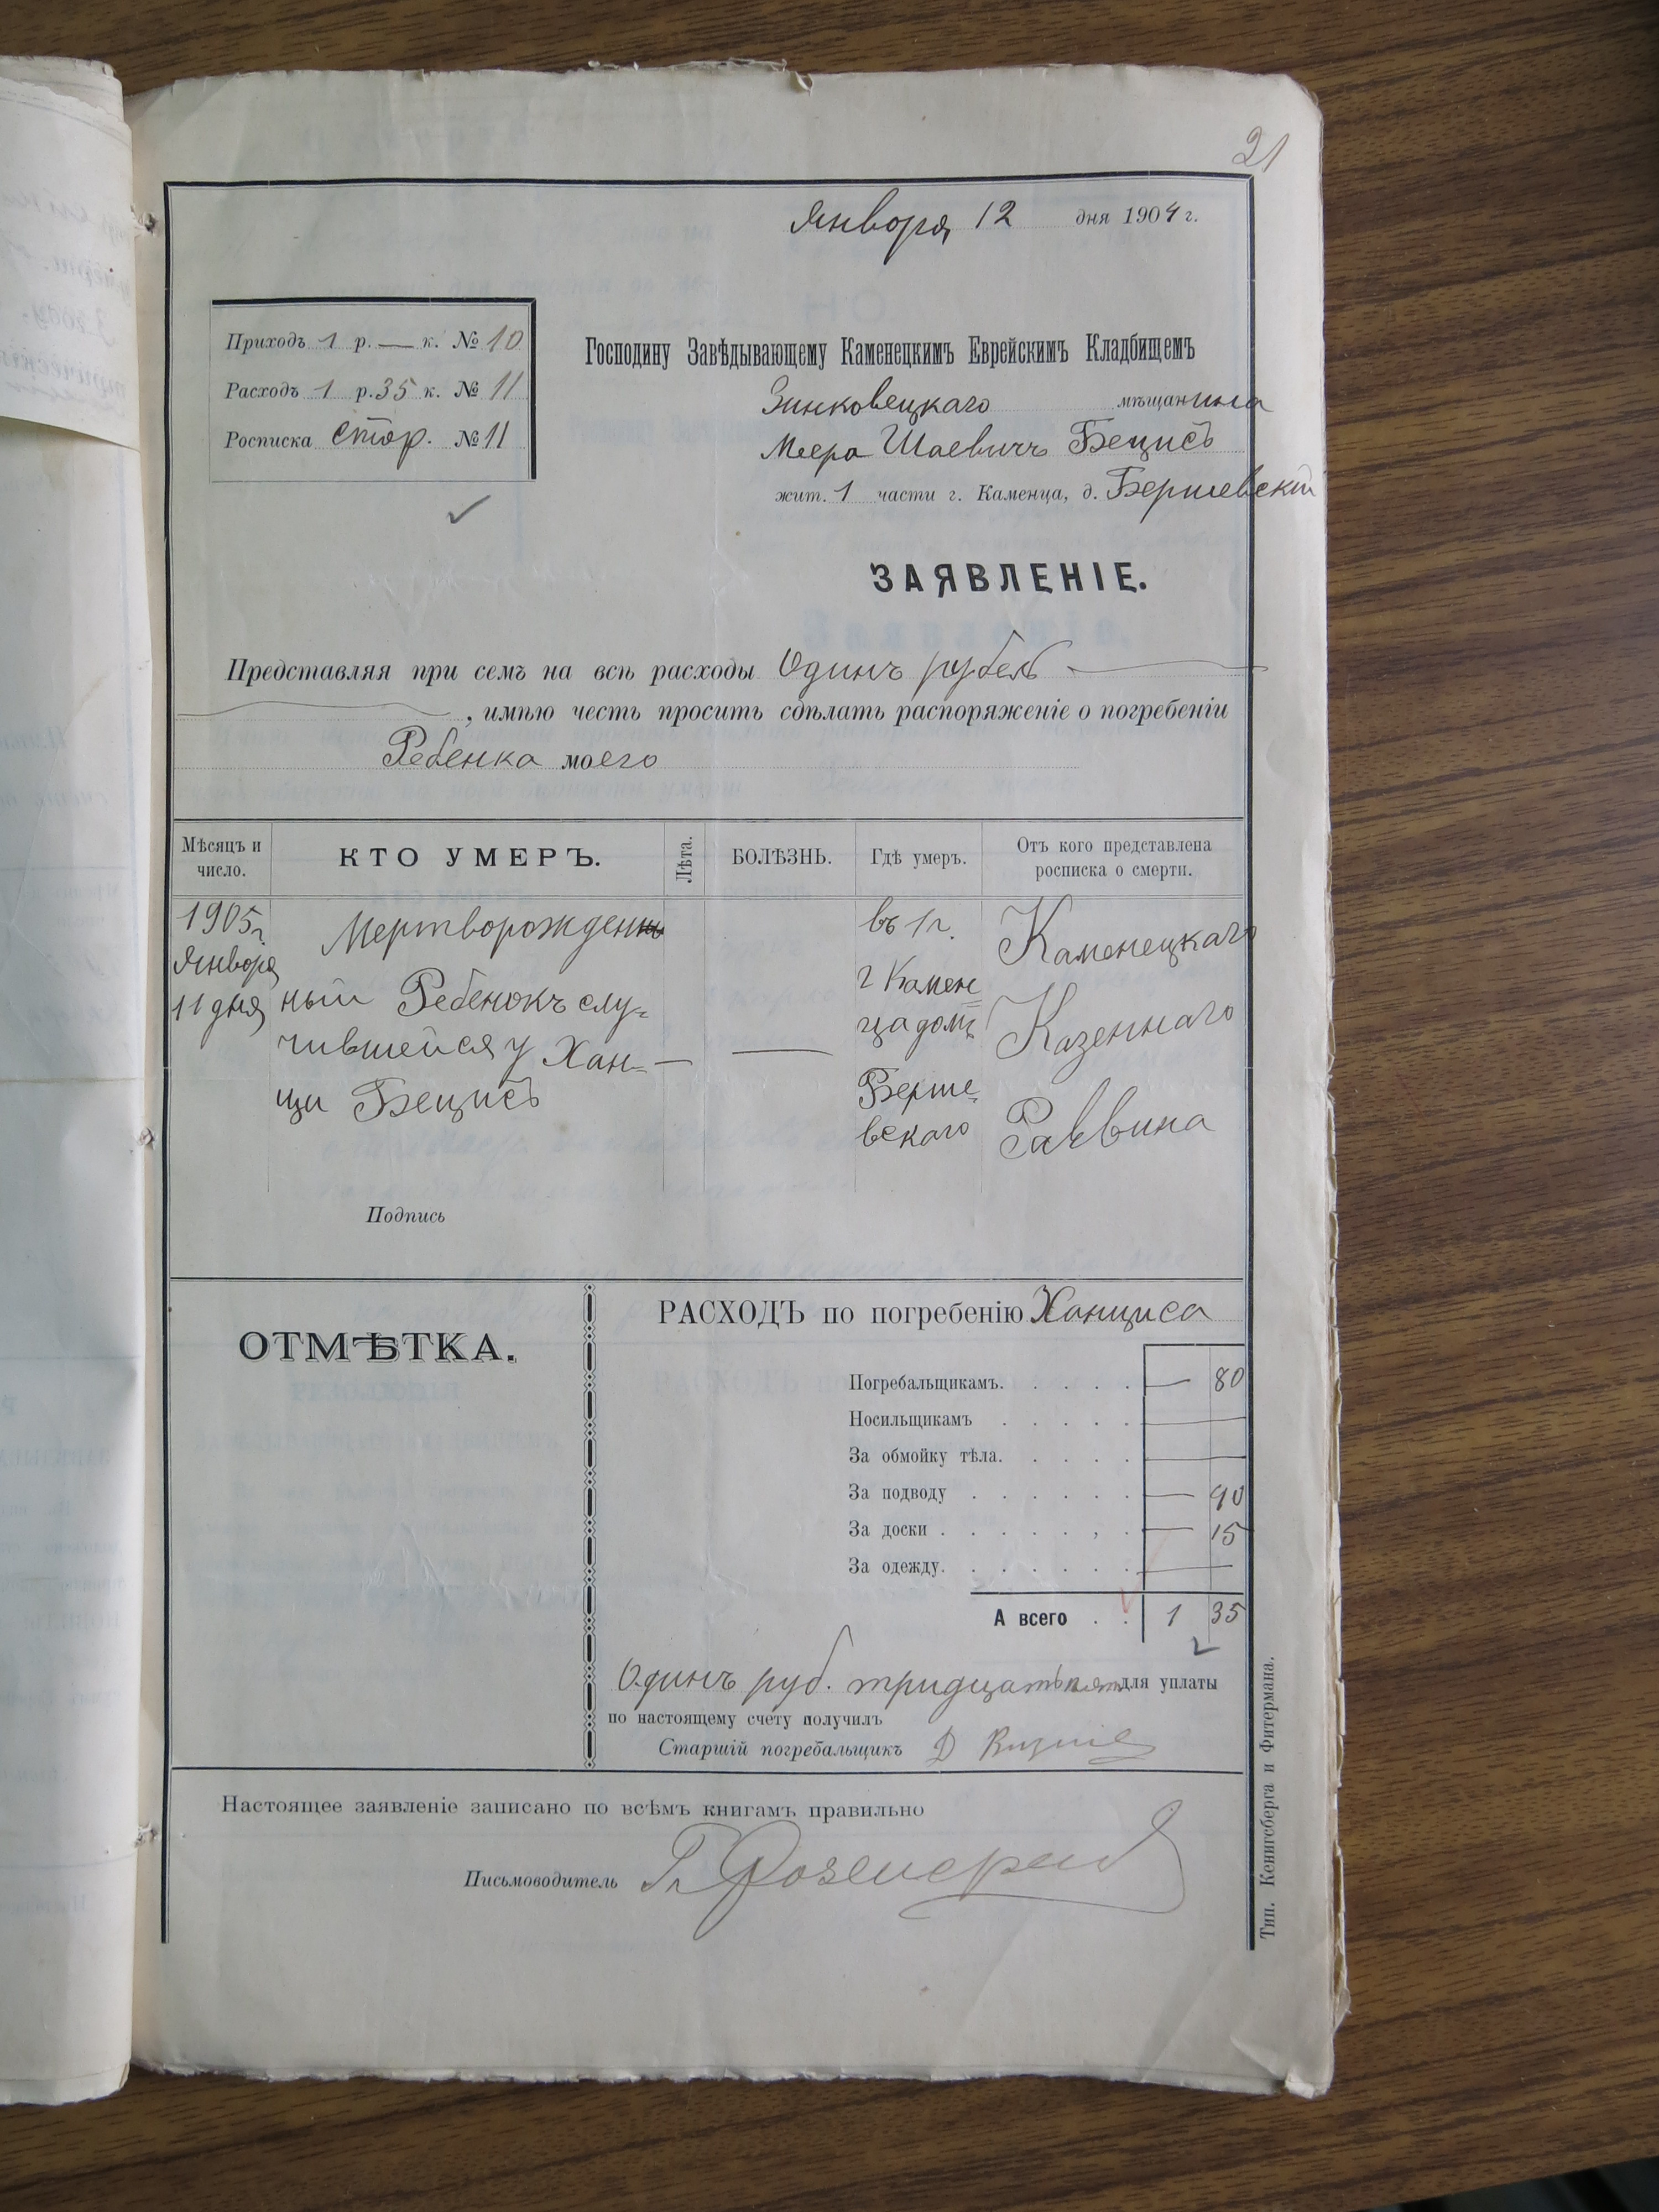 21
Января 12 дня 1904 г.
Приходъ 1 р. — к. № 10
Расходъ 1 р. 35 к. № 11
Росписка стор. № 11
Господину Завѣдывающему Каменецкимъ Еврейскимъ Кладбищемъ
Зинковецкаго мѣщанина
Меера Шаевичъ Бецисъ
жит. 1 части г. Каменца, д. Бершевскій
ЗАЯВЛЕНІЕ.
Представляя при семъ на всѣ расходы Одинъ рубель
, имѣю честь просить сдѣлать распоряженіе о погребеніи
Ребенка моего
Мѣсяцъ и число.
КТО УМЕРЪ.
Лѣта.
БОЛѢЗНЬ.
Гдѣ умеръ.
Отъ кого представлена росписка о смерти.
1905 г.
Января
11 дня
Мертворожден
ный Ребенокъ слу-
чившейся у Хан-
ци Бецисъ
—
—
въ 1 ч.
г Камен
ца домъ
Берше-
вскаго
Каменецкаго
Казеннаго
Раввина
Подпись
ОТМѢТКА.
РАСХОДЪ по погребенію Ханциса
Погребальщикамъ. . . . . — 80
Носильщикамъ . . . . . —
За обмойку тѣла. . . . . —
За подводу . . . . . . — 40
За доски . . . . . , . — 15
За одежду. . . . . . . —
А всего . . 1 35
Одинъ руб. тридцать пять для уплаты
по настоящему счету получилъ
Старшій погребальщикъ Д
Настоящее заявленіе записано по всѣмъ книгамъ правильно
Письмоводитель
Тип. Кенигсберга и Фитермана.